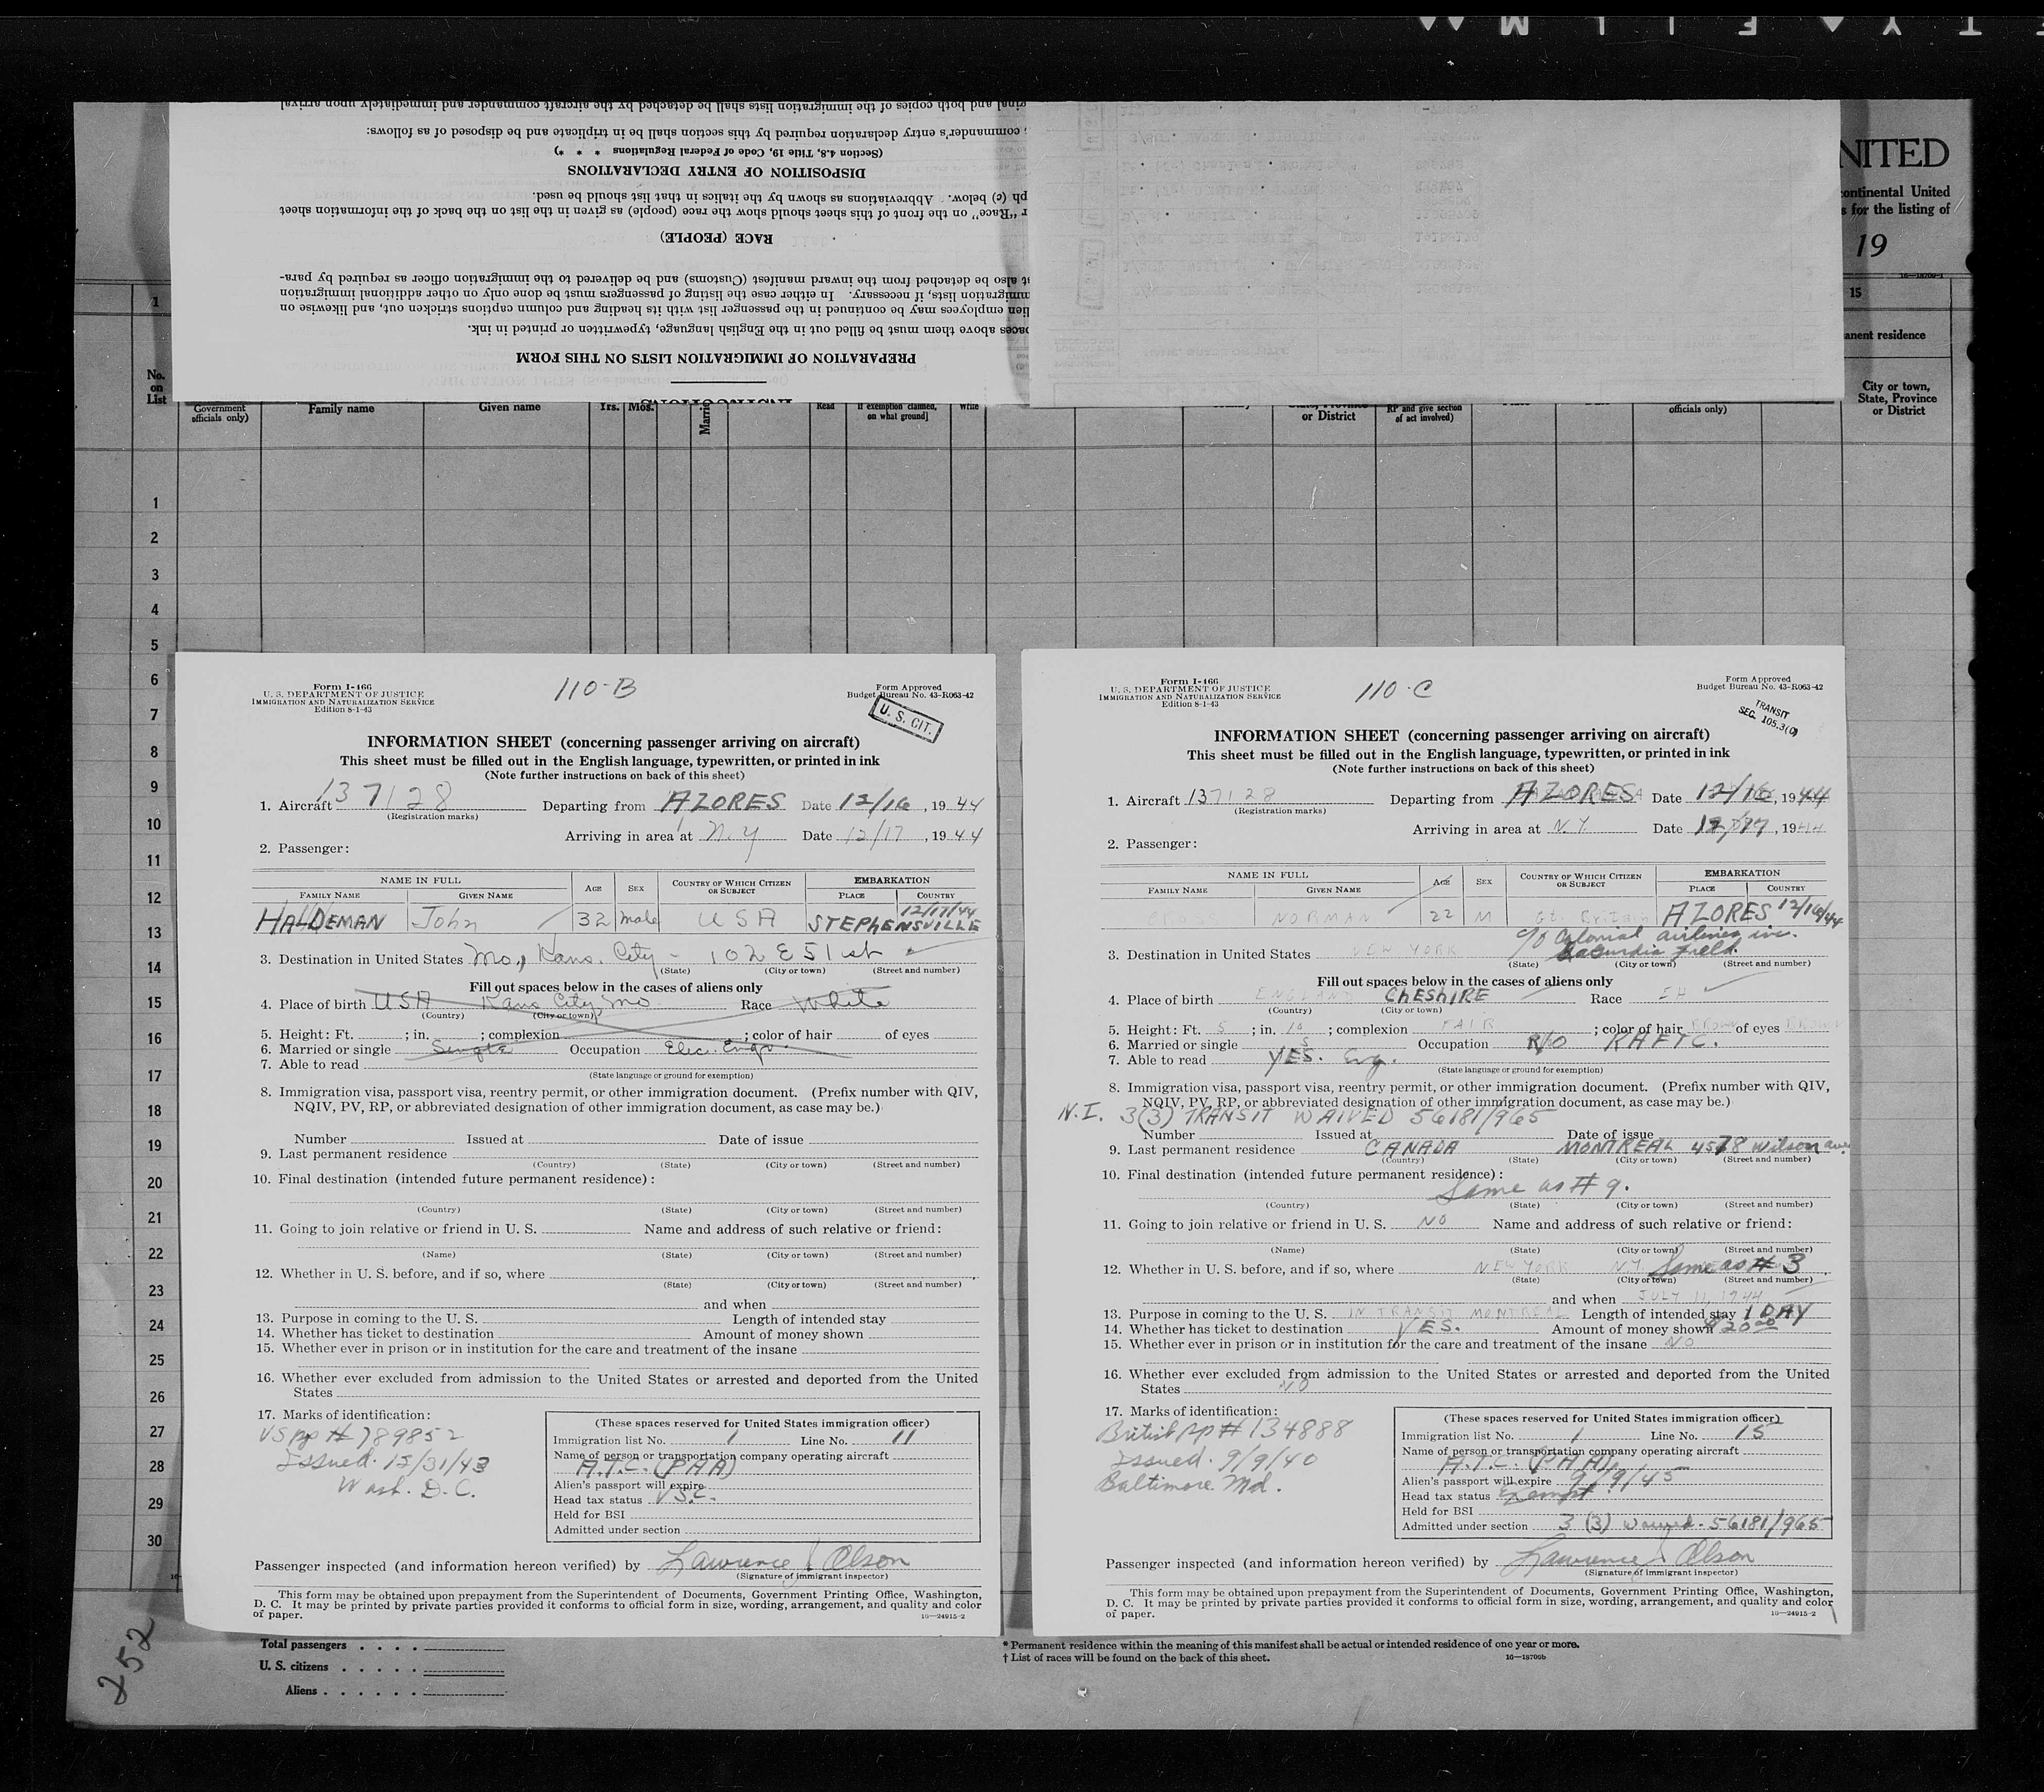 ginal and both copies of the immigration lists shall be detached by the aircraft commander and immediately upon arrival
commander's entry declaration required by this section shall be in triplicate and be disposed of as follows:
(Section 4.8, Title 19, Code of Federal Regulations * * *)
DISPOSITION OF ENTRY DECLARATIONS
ph (c) below. Abbreviations as shown by the italics in that list should be used.
r "Race" on the front of this sheet should show the race (people) as given in the list on the back of the information sheet
RACE (PEOPLE)
also be detached from the inward manifest (Customs) and be delivered to the immigration officer as required by para-
mmigration lists, if necessary. In either case the listing of passengers must be done only on other additional immigration
lien employees may be continued in the passenger list with its heading and column captions stricken out, and likewise on
paces above them must be filled out in the English language, typewritten or printed in ink.
PREPARATION OF IMMIGRATION LISTS ON THIS FORM
NITED
continental United
s for the listing of
19
1
15
anent residence
No. on List
Government officials only)
Family name
Given name
Yrs.
Mos.
Read
If exemption claimed, on what ground]
Write
or District
RP and give section of act involved)
officials only)
City or town, State, Province or District
1
2
3
4
5
6
7
8
9
10
11
12
13
14
15
16
17
18
19
20
21
22
23
24
25
26
27
28
29
30
Form I-466
U. S. DEPARTMENT OF JUSTICE
IMMIGRATION AND NATURALIZATION SERVICE
Edition 8-1-43
110-B
Form Approved
Budget Bureau No. 43-R063-42
U. S. CIT.
INFORMATION SHEET (concerning passenger arriving on aircraft)
This sheet must be filled out in the English language, typewritten, or printed in ink
(Note further instructions on back of this sheet)
1. Aircraft 137128 Departing from AZORES Date 12/16, 1944
(Registration marks)
Arriving in area at N.Y Date 12/17, 1944
2. Passenger:
NAME IN FULL AGE SEX COUNTRY OF WHICH CITIZEN OR SUBJECT EMBARKATION
FAMILY NAME GIVEN NAME PLACE COUNTRY
12/17/44
HALDEMAN John 32 male USA STEPHENSVILLE
3. Destination in United States Mo., Kans. City - 102 E 51 st
(State) (City or town) (Street and number)
Fill out spaces below in the cases of aliens only
4. Place of birth USA Kans City, Mo Race White
(Country) (City or town)
5. Height: Ft. ; in. ; complexion ; color of hair of eyes
6. Married or single Single Occupation Elec. Engr.
7. Able to read
(State language or ground for exemption)
8. Immigration visa, passport visa, reentry permit, or other immigration document. (Prefix number with QIV,
NQIV, PV, RP, or abbreviated designation of other immigration document, as case may be.)
Number Issued at Date of issue
9. Last permanent residence
(Country) (State) (City or town) (Street and number)
10. Final destination (intended future permanent residence):
(Country) (State) (City or town) (Street and number)
11. Going to join relative or friend in U. S. Name and address of such relative or friend:
(Name) (State) (City or town) (Street and number)
12. Whether in U. S. before, and if so, where
(State) (City or town) (Street and number)
and when
13. Purpose in coming to the U. S. Length of intended stay
14. Whether has ticket to destination Amount of money shown
15. Whether ever in prison or in institution for the care and treatment of the insane
16. Whether ever excluded from admission to the United States or arrested and deported from the United
States
17. Marks of identification:
US pp # 789852
Issued. 12/31/43
Wash. D.C.
(These spaces reserved for United States immigration officer)
Immigration list No. 1 Line No. 11
Name of person or transportation company operating aircraft
A.T.C. (PAA)
Alien's passport will expire
Head tax status USC.
Held for BSI
Admitted under section
Passenger inspected (and information hereon verified) by Lawrence J Olson
(Signature of immigrant inspector)
This form may be obtained upon prepayment from the Superintendent of Documents, Government Printing Office, Washington,
D. C. It may be printed by private parties provided it conforms to official form in size, wording, arrangement, and quality and color
of paper.
16—24915-2
Form I-466
U. S. DEPARTMENT OF JUSTICE
IMMIGRATION AND NATURALIZATION SERVICE
Edition 8-1-43
110-C
Form Approved
Budget Bureau No. 43-R063-42
TRANSIT
SEC. 105.3(c)
INFORMATION SHEET (concerning passenger arriving on aircraft)
This sheet must be filled out in the English language, typewritten, or printed in ink
(Note further instructions on back of this sheet)
1. Aircraft 137128 Departing from AZORES Date 12/16, 1944
(Registration marks)
Arriving in area at N.Y Date 12/17, 1944
2. Passenger:
NAME IN FULL AGE SEX COUNTRY OF WHICH CITIZEN OR SUBJECT EMBARKATION
FAMILY NAME GIVEN NAME PLACE COUNTRY
CROSS NORMAN 22 M Gt. Britain AZORES 12/16/44
c/o Colonial airlines inc.
3. Destination in United States NEW YORK LaGuardia field.
(State) (City or town) (Street and number)
Fill out spaces below in the cases of aliens only
4. Place of birth ENGLAND CHESHIRE Race
(Country) (City or town)
5. Height: Ft. 5; in. 10; complexion FAIR; color of hair BROWN of eyes BROWN
6. Married or single S Occupation R/O RAFTC.
7. Able to read YES. Eng.
(State language or ground for exemption)
8. Immigration visa, passport visa, reentry permit, or other immigration document. (Prefix number with QIV,
NQIV, PV, RP, or abbreviated designation of other immigration document, as case may be.)
N.I. 3(3) TRANSIT WAIVED 56181/965
Number Issued at Date of issue
9. Last permanent residence CANADA MONTREAL 4578 Wilson ave.
(Country) (State) (City or town) (Street and number)
10. Final destination (intended future permanent residence):
Same as # 9.
(Country) (State) (City or town) (Street and number)
11. Going to join relative or friend in U. S. NO Name and address of such relative or friend:
(Name) (State) (City or town) (Street and number)
12. Whether in U. S. before, and if so, where NEW YORK N.Y. Same as # 3
(State) (City or town) (Street and number)
and when JULY 11, 1944
13. Purpose in coming to the U. S. IN TRANSIT MONTREAL Length of intended stay 1 DAY
14. Whether has ticket to destination YES. Amount of money shown $20.00
15. Whether ever in prison or in institution for the care and treatment of the insane NO
16. Whether ever excluded from admission to the United States or arrested and deported from the United
States NO
17. Marks of identification:
British pp # 134888
Issued. 9/9/40
Baltimore. Md.
(These spaces reserved for United States immigration officer)
Immigration list No. 1 Line No. 15
Name of person or transportation company operating aircraft
A.T.C. (PAA)
Alien's passport will expire 9/9/45
Head tax status Exempt
Held for BSI
Admitted under section 3 (3) waived. 56181/965
Passenger inspected (and information hereon verified) by Lawrence J Olson
(Signature of immigrant inspector)
This form may be obtained upon prepayment from the Superintendent of Documents, Government Printing Office, Washington,
D. C. It may be printed by private parties provided it conforms to official form in size, wording, arrangement, and quality and color
of paper.
16—24915-2
252
Total passengers . . . .
U. S. citizens . . . . .
Aliens . . . . . .
* Permanent residence within the meaning of this manifest shall be actual or intended residence of one year or more.
† List of races will be found on the back of this sheet.
16—18700b